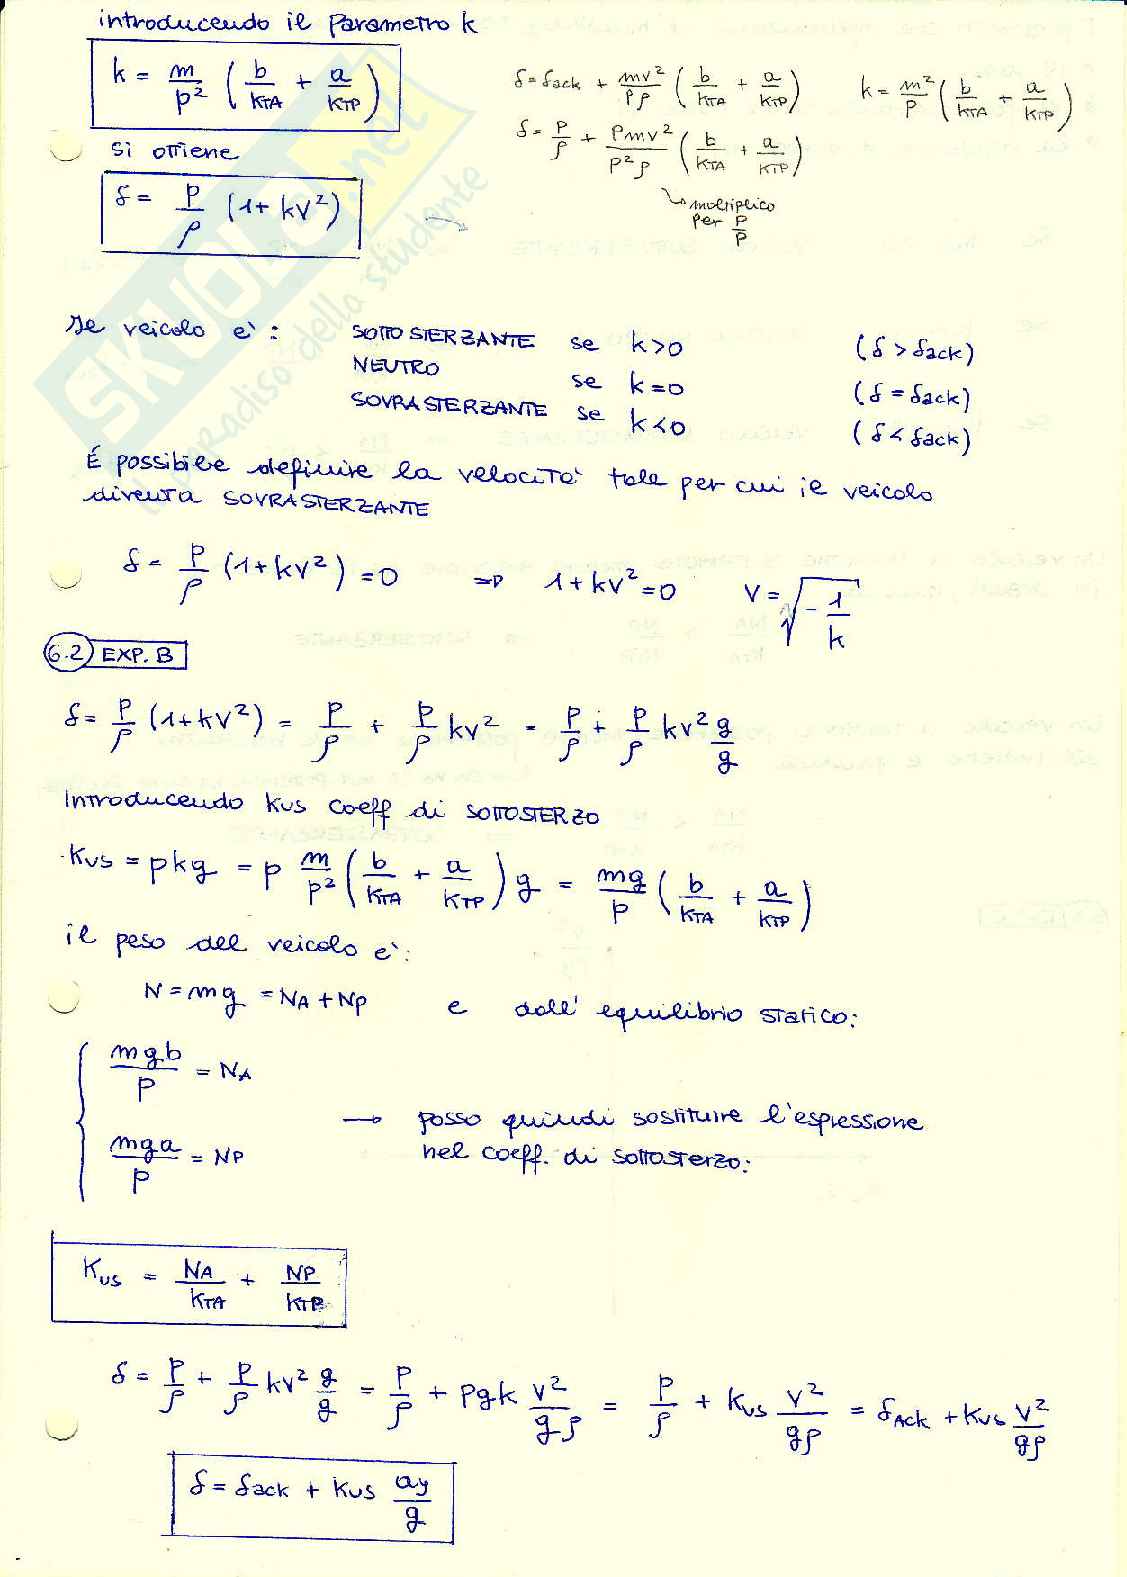 introducendo il parametro k
k = m/p² (b/KTA + a/KTP)
δ = δack + mv²/pρ (b/KTA + a/KTP)
k = m²/p (b/KTA + a/KTP)
si ottiene
δ = p/ρ + pmv²/p²ρ (b/KTA + a/KTP)
↳ moltiplico
per p/p
δ = p/ρ (1+kv²)
SKUOLA.net
il paradiso dello studente
se veicolo è: SOTTOSTERZANTE se k>0 (δ > δack)
NEUTRO se k=0 (δ = δack)
SOVRASTERZANTE se k<0 (δ < δack)
É possibile definire la velocità tale per cui il veicolo
diventa SOVRASTERZANTE
δ = p/ρ (1+kv²) = 0 ⇒ 1+kv²=0 v = √-1/k
6.2 EXP. B
δ = p/ρ (1+kv²) = p/ρ + p/ρ kv² = p/ρ + p/ρ kv² g/g
Introducendo Kus coeff di SOTTOSTERZO
Kus = pkg = p m/p² (b/KTA + a/KTP) g = mg/p (b/KTA + a/KTP)
il peso del veicolo è:
N = mg = NA + NP e dall' equilibrio statico:
mgb/p = NA
→ posso quindi sostituire l'espressione
mga/p = NP
nel coeff. di sottosterzo:
Kus = NA/KTA + NP/KTP
δ = p/ρ + p/ρ kv² g/g = p/ρ + pgk v²/gρ = p/ρ + Kus v²/gρ = δAck + Kus v²/gρ
δ = δack + Kus ay/g